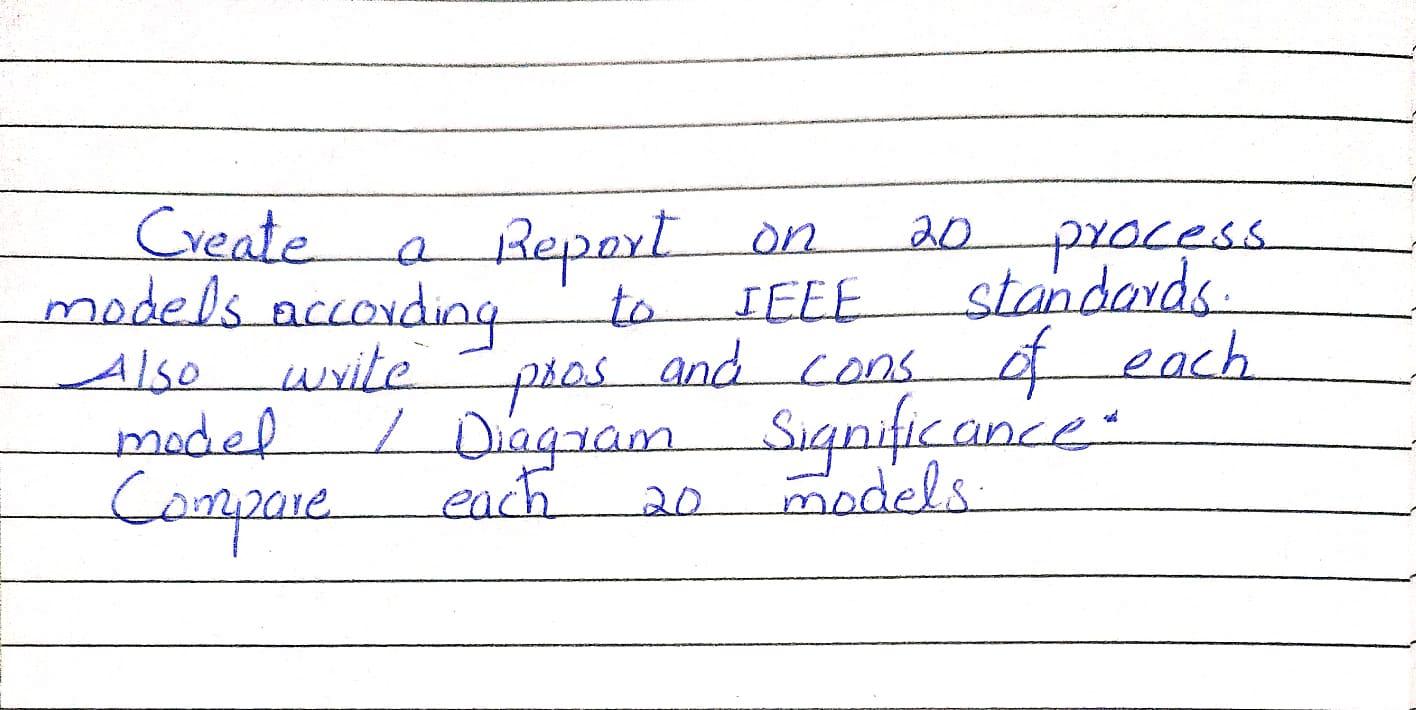 Create a Report on 20 process
models according to IEEE standards.
Also write pros and cons of each
model / Diagram Significance.
Compare each 20 models.